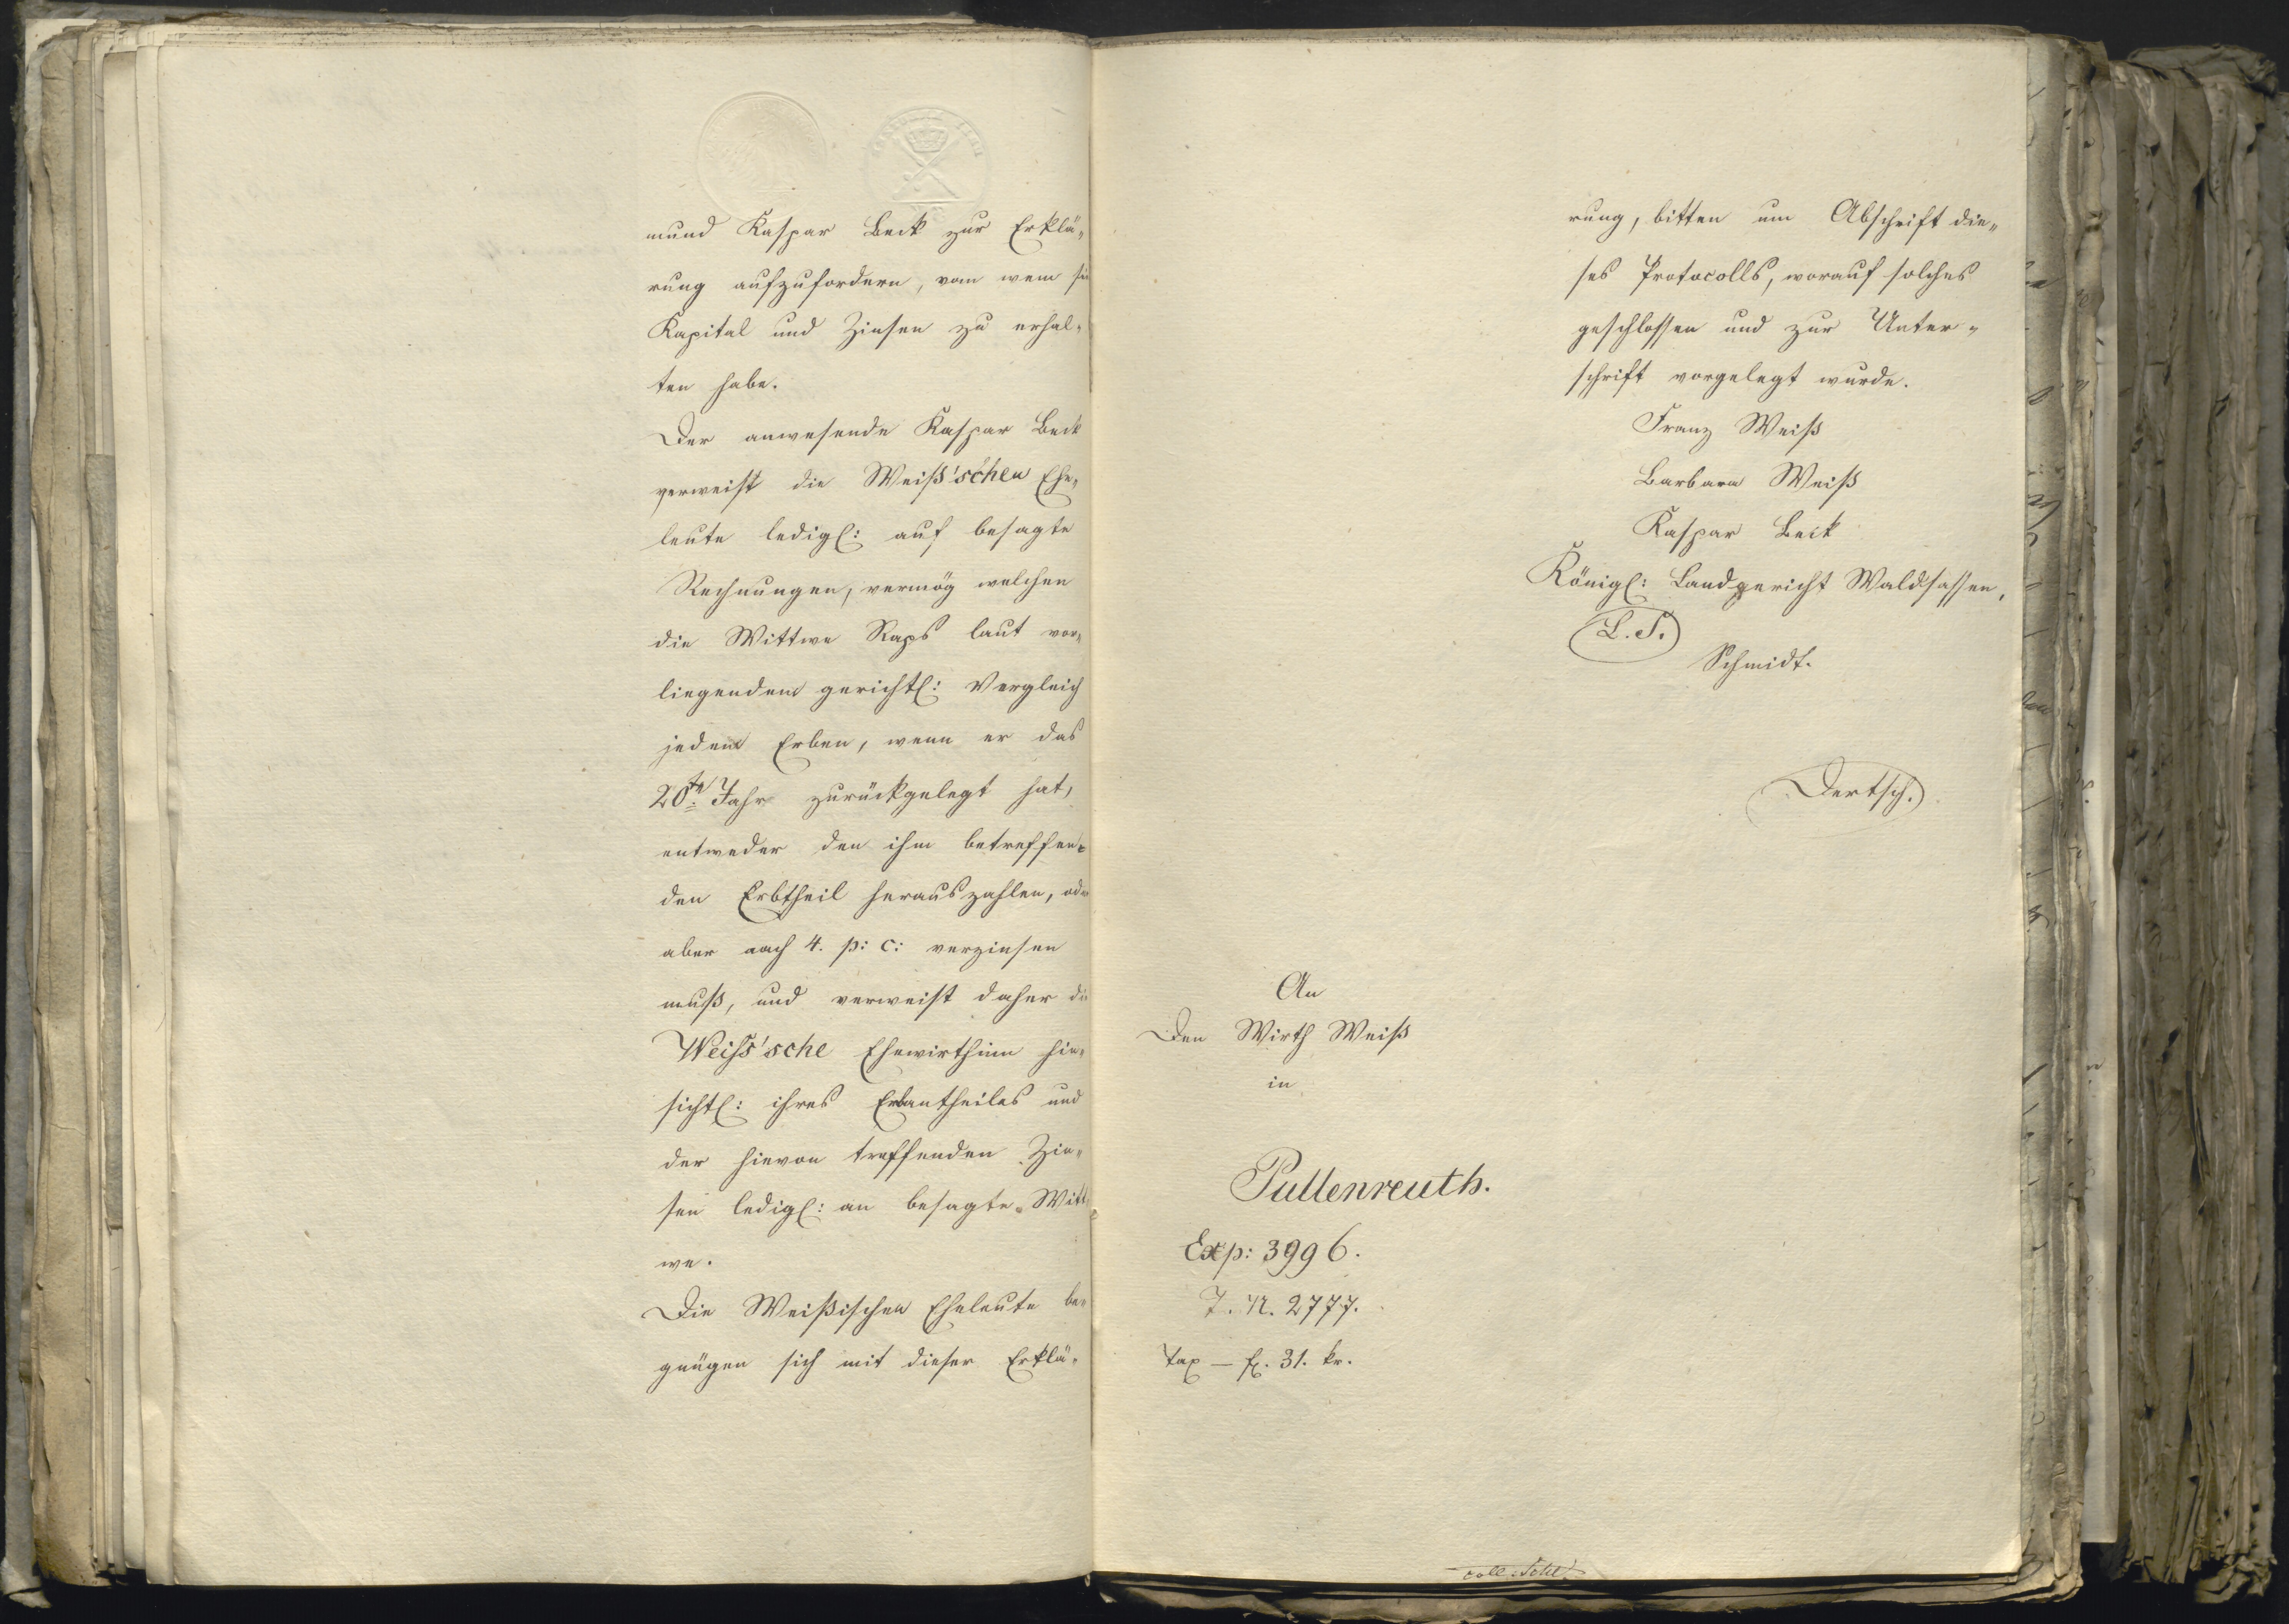 mund Kaspar Beck zur Erklä„
rung aufzufordern, von wem sie
Kapital und Zinsen zu erhal„
ten habe.
Der anwesende Kaspar Beck
verweist die Weiß'schen Ehe„
leute ledigl: auf besagte
Rechnungen, vermög welchen
die Wittwe Raps laut vor„
liegendem gerichtl: Vergleich
jedem Erben, wenn er das
20te Jahr zurückgelegt hat,
entweder den ihm betreffen„
den Erbtheil herauszahlen, oder
aber nach 4. p: c: verzinsen
muß, und verweist daher die
Weiss'sche Ehewirthinn hin„
sichtl: ihres Erbantheiles und
der hievon treffenden Zin„
sen ledigl: an besagte Witt„
we.
Die Weißischen Eheleute be„
gnügen sich mit dieser Erklä„
rung, bitten um Abschrift die„
ses Protocolls, worauf solches
geschlossen und zur Unter„
schrift vorgelegt wurde.
Franz Weiß
Barbara Weiß
Kaspar Beck
Königl: Landgericht Waldsassen,
L. S.
Schmidt.
Dertsch.
An
Den Wirth Weiß
in
Pullenreuth.
Exp: 3996.
T. N. 2777.
Tax — fl. 31. kr.